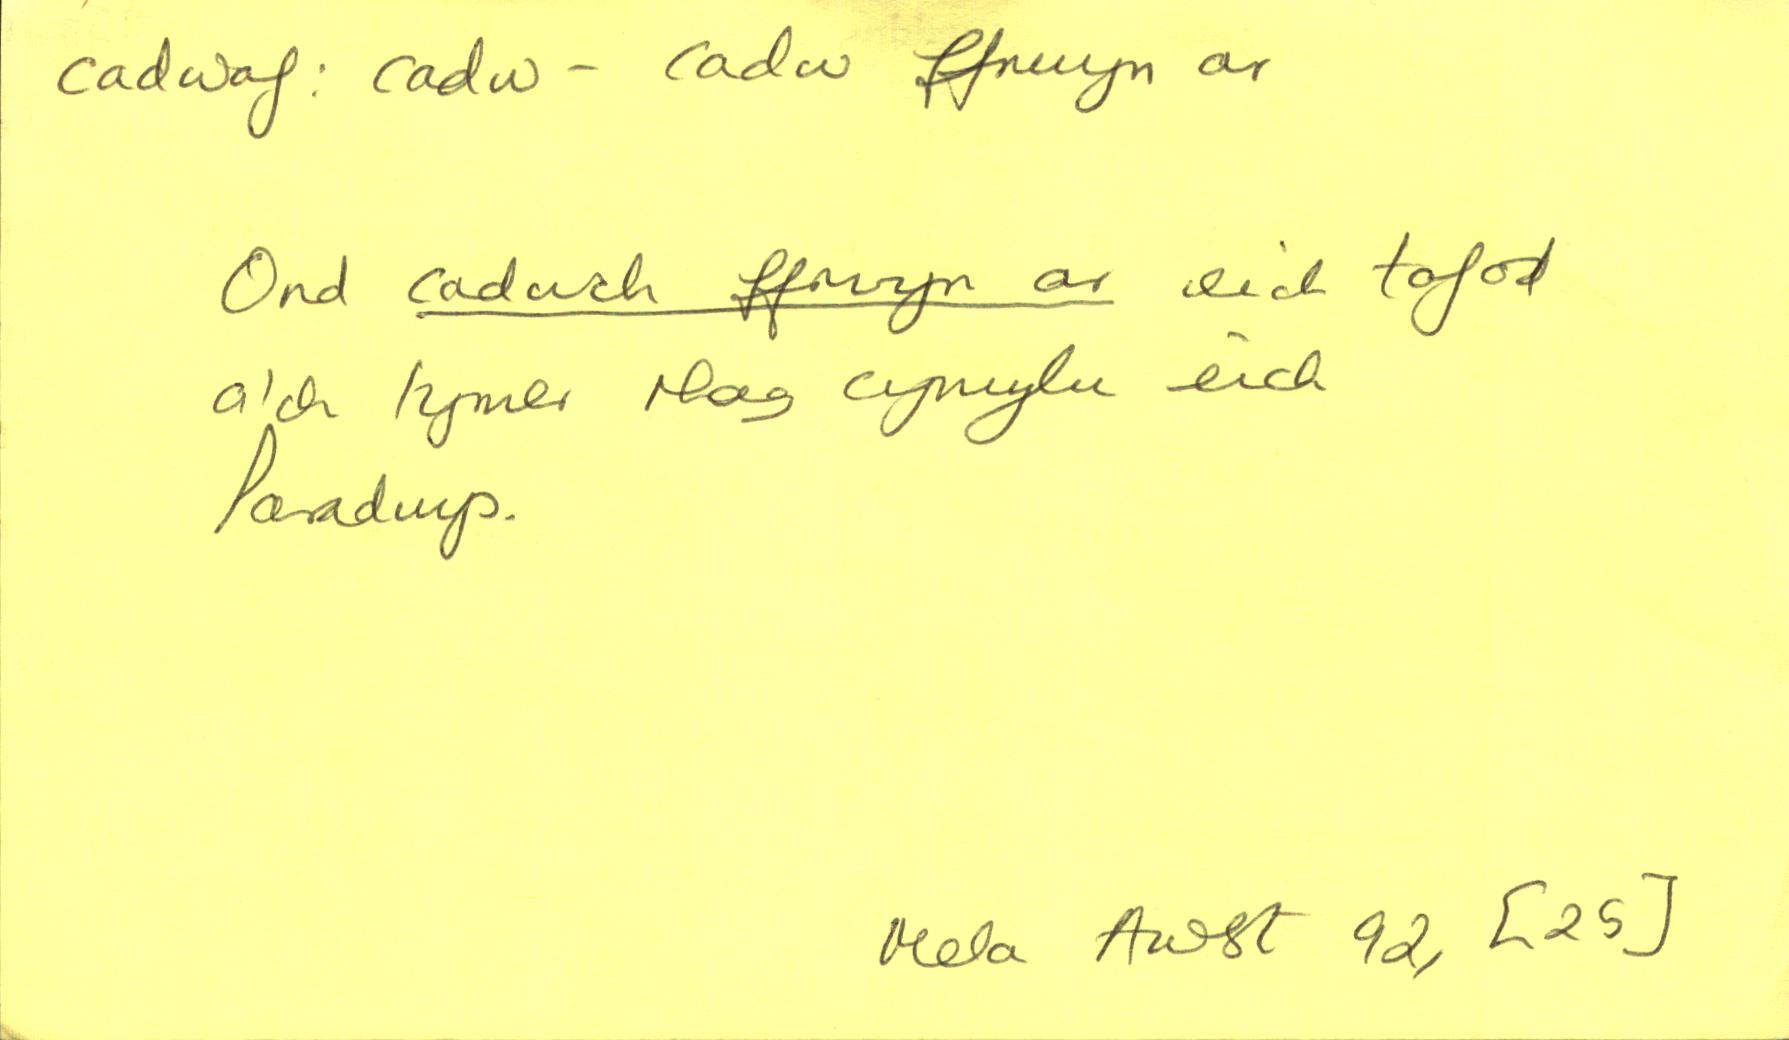 cadwaf: cadw - cadw ffrwyn ar
Ond cadwch ffrwyn ar eich tafod
a'ch tymer rhag cymylu eich
Paradwys.
Mela Awst 92, [25]